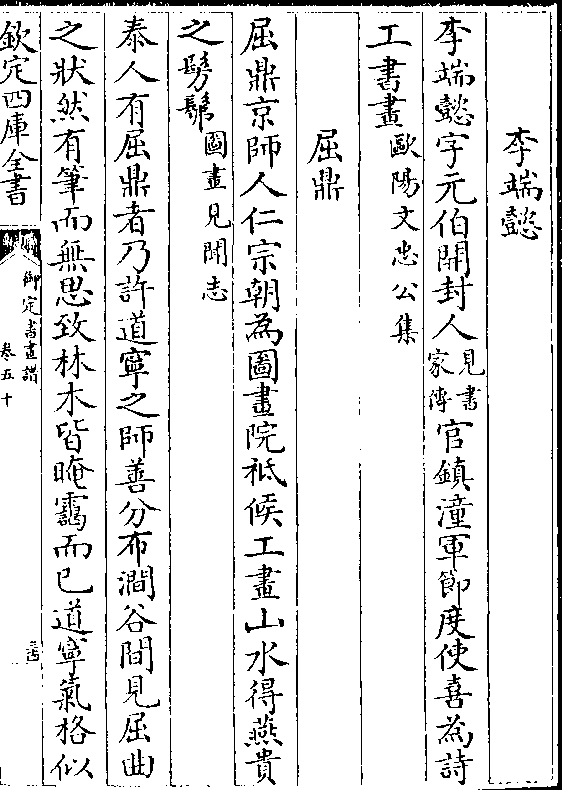 李端懿
李端懿字元伯開封人見書家傳官鎮潼軍節度使喜為詩
工書畫歐陽文忠公集
屈鼎
屈鼎京師人仁宗朝為圖畫院祗候工畫山水得燕貴
之髣髴圖畫見聞志
泰人有屈鼎者乃許道寧之師善分布澗谷間見屈曲
之狀然有筆而無思致林木皆晻靄而已道寧氣格似
欽定四庫全書
御定書畫譜
卷五十